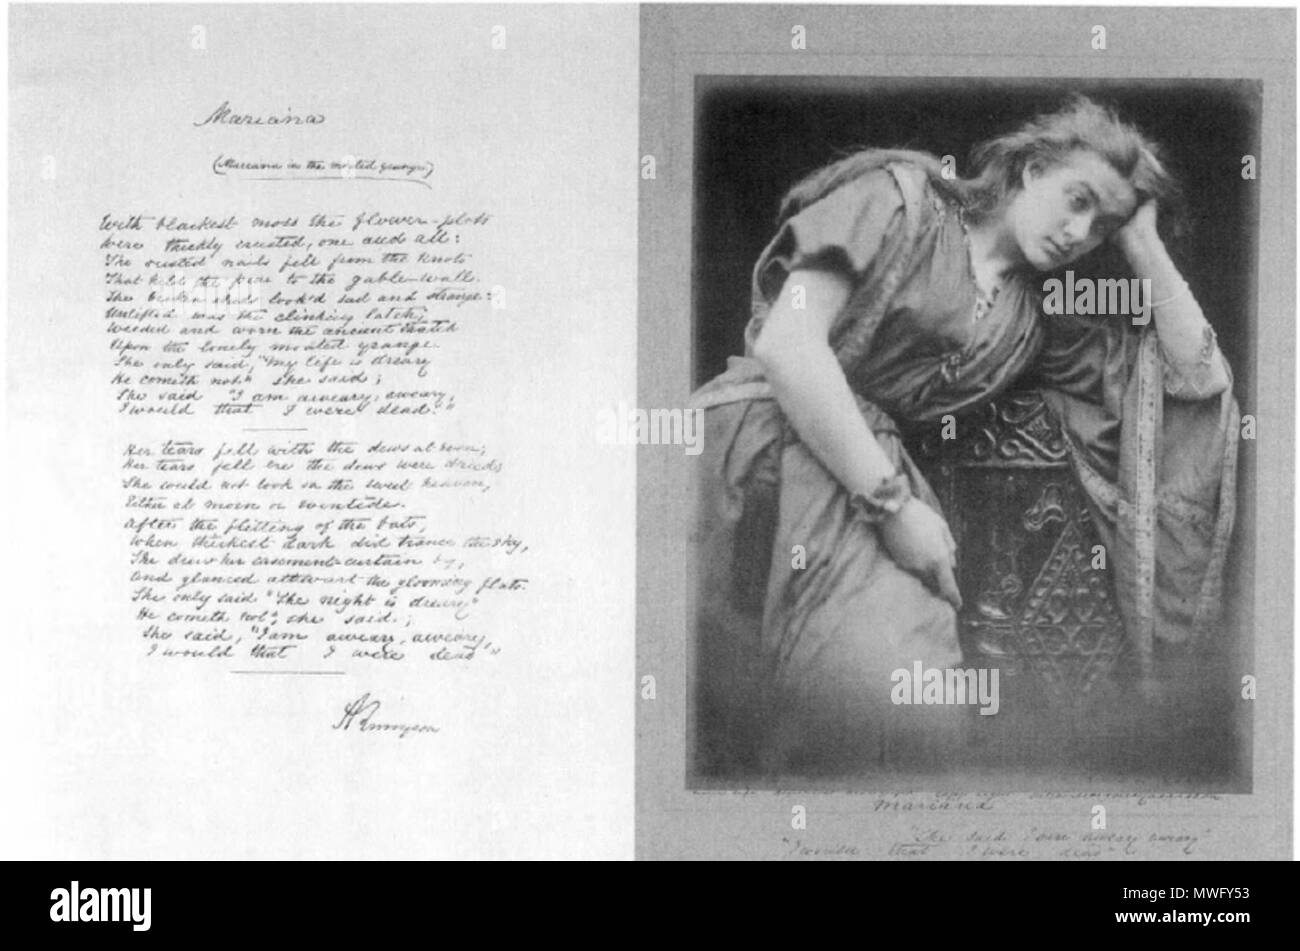 Mariana
(Mariana in the moated grange)
With blackest moss the flower-plots
Were thickly crusted, one and all:
The rusted nails fell from the knots
That held the pear to the gable-wall.
The broken sheds look'd sad and strange:
Unlifted was the clinking latch;
Weeded and worn the ancient thatch
Upon the lonely moated grange.
She only said, "My life is dreary
He cometh not" she said;
She said "I am aweary, aweary,
I would that I were dead."
Her tears fell with the dews at even;
Her tears fell ere the dews were dried;
She could not look on the sweet heaven,
Either at morn or eventide.
After the flitting of the bats,
When thickest dark did trance the sky,
She drew her casement-curtain by,
And glanced athwart the glooming flats.
She only said "The night is dreary"
He cometh not", she said;
She said, "I am aweary, aweary,
I would that I were dead"
A Tennyson
Mariana
"She said I am aweary aweary"
"I would that I were dead"
alamy
alamy
Image ID: MWFY53
www.alamy.com